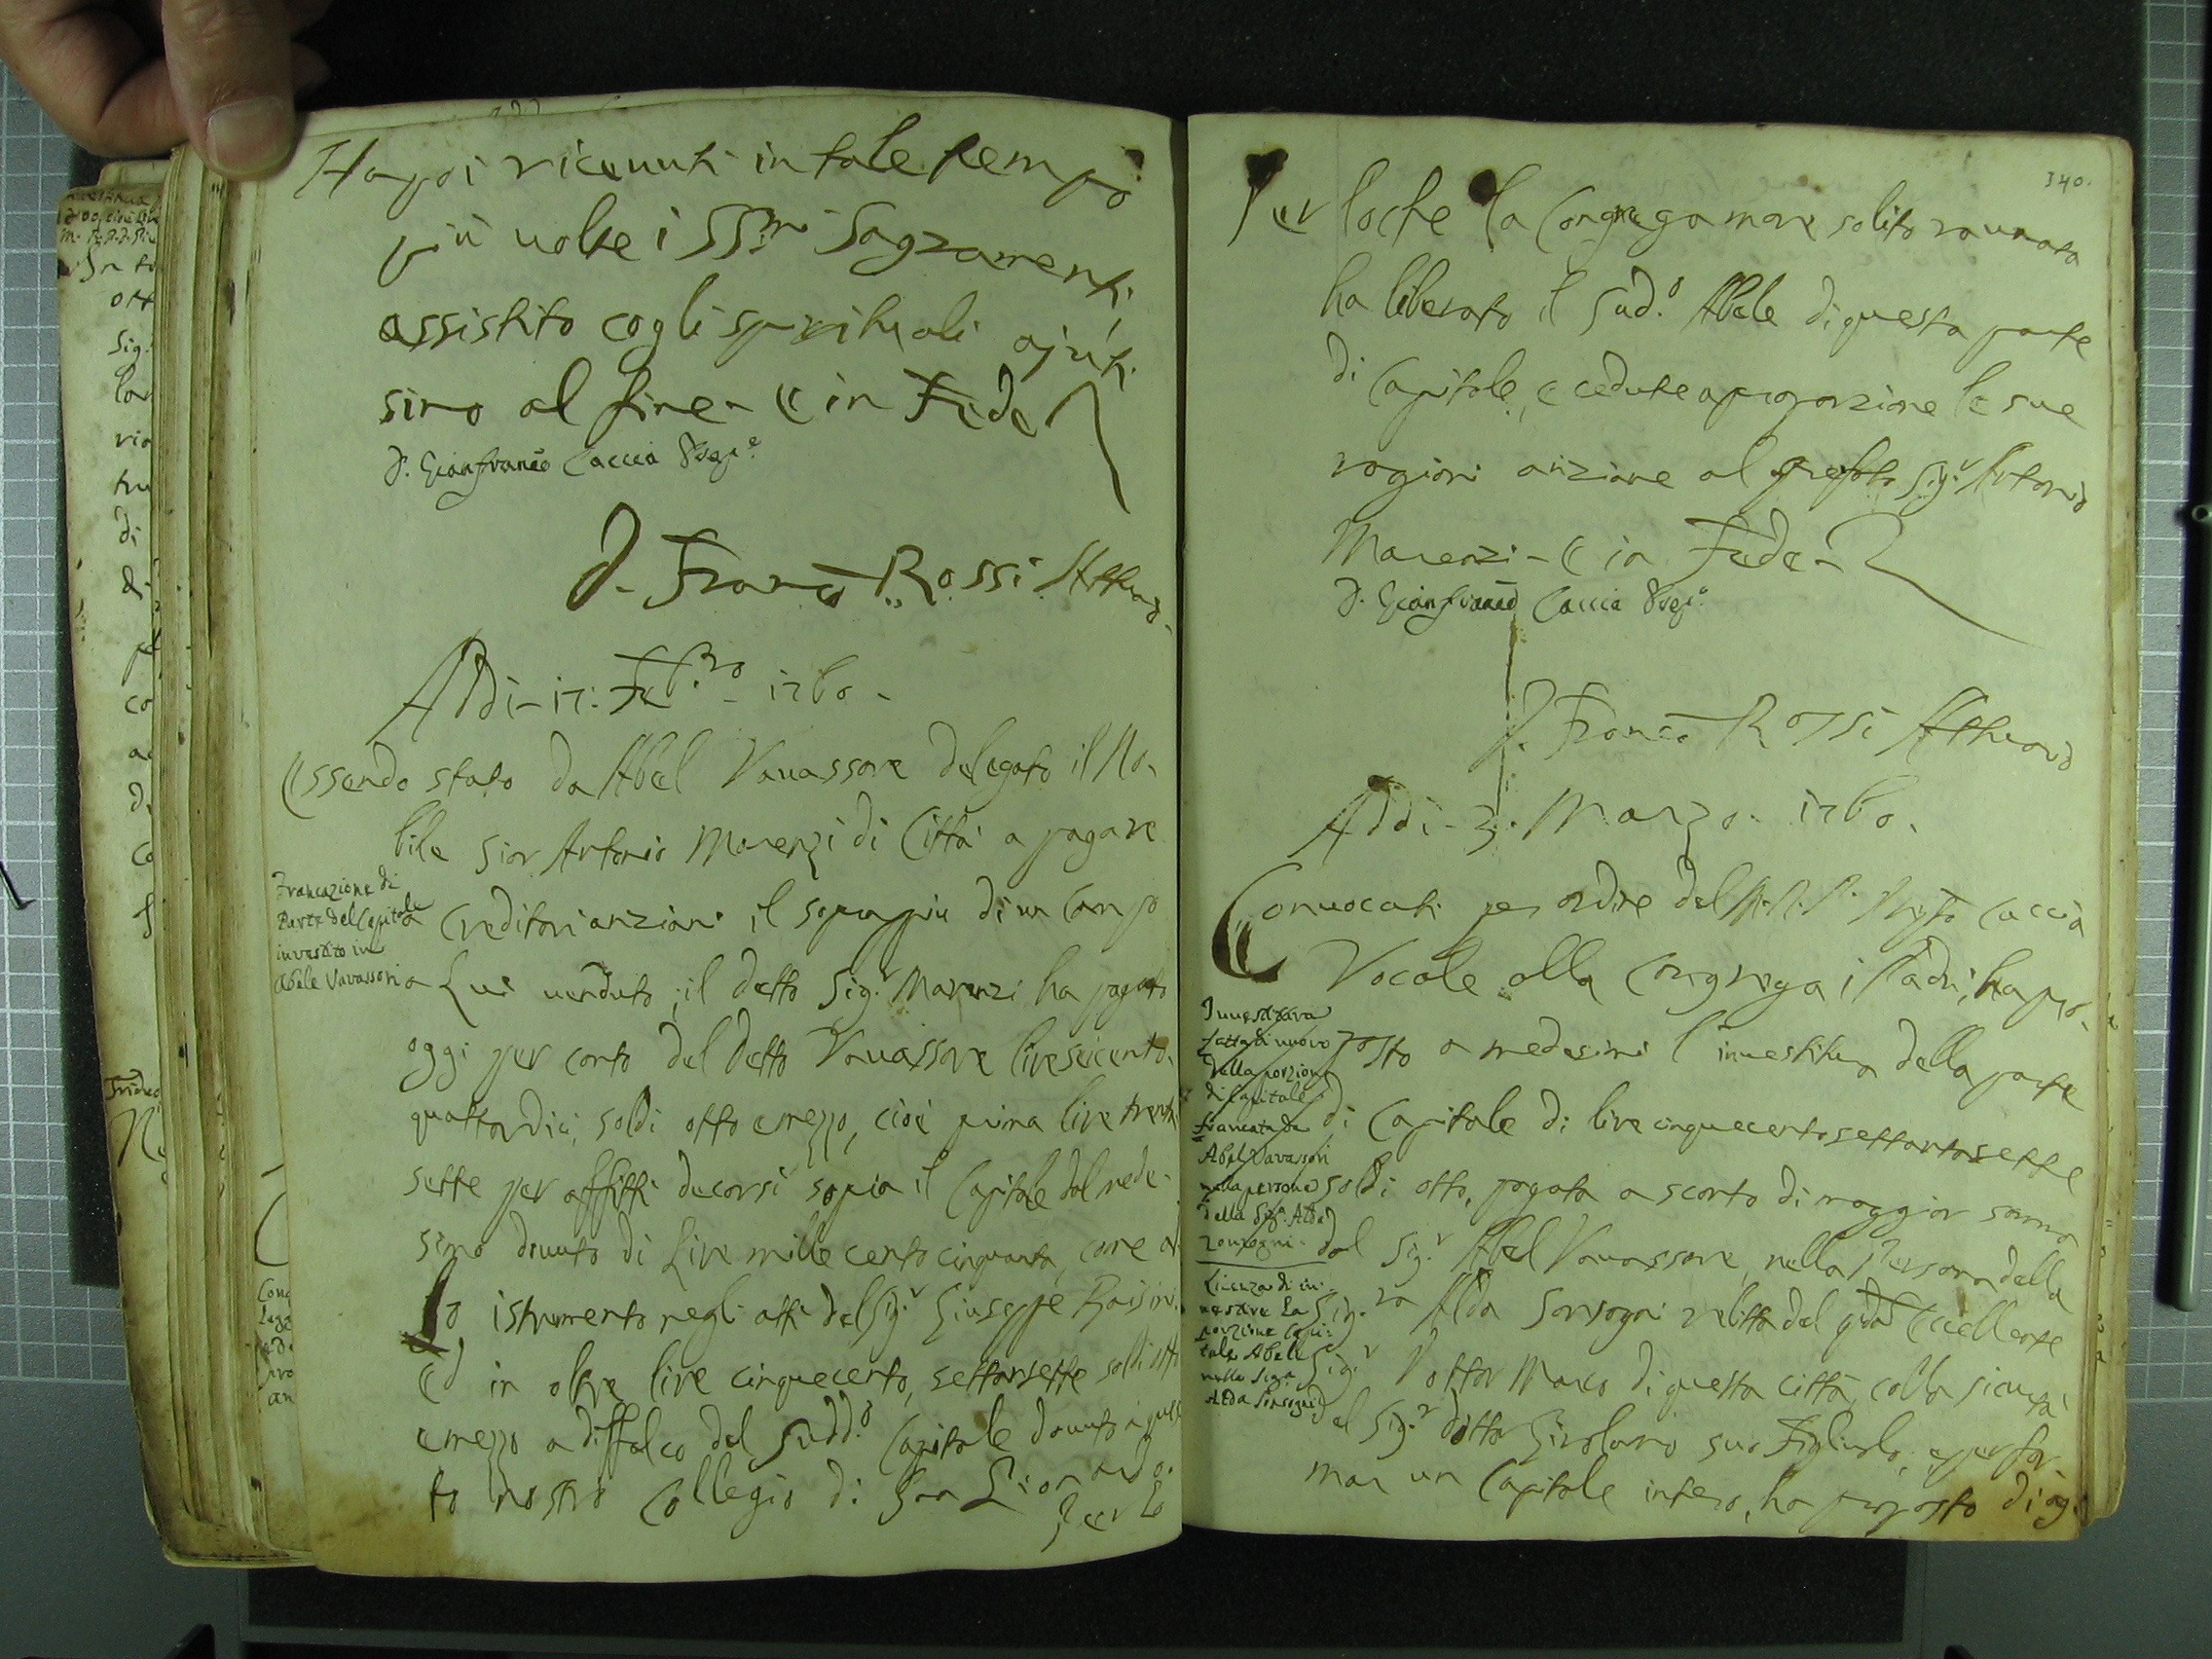 Ha poi riceuuti in tale tempo
più uolte i SS.mi Sagramenti,
assistito cogli spirituali ajuti
sino al fine - E in Fede
D. Gianfranco Caccia Prep.o
D. Franco Rossi Attuario
Addi - 17: Feb.ro - 1760 -
Essendo stato da Abel Vauassore delegato il No-
bile Sior Antonio Marenzi di Città a pagare
Francazione di
Parte del Capitale
inuestito in
Abele Vavassori
a Creditori anziani il sopra più di un Campo
a Lui uenduto, il detto Sig.r Marenzi ha pagato
oggi per conto del detto Vauassore lire seicento
quattordici, soldi otto e mezzo, cioè prima lire trenta
sette per affitti decorsi sopra il Capitale dal mede-
simo douuto di Lire mille cento cinquanta, come da
istrumento negli atti del Sig.r Giuseppe Raisini
Ed in oltre lire cinquecento settansette soldi otto
e mezzo a diffalco del Sudd.o Capitale douuto a ques
to nostro Collegio di San Lionardo.
Per lo
140.
Per loche la Congrega more solito raunata
ha liberato il Sud.o Abele di questa parte
di Capitale, e cedute a proporzione le sue
ragioni anziane al prefato Sig.r Antonio
Marenzi - E in Fede -
D. Gianfranco Caccia Prep.o
D. Franco Rossi Attuario
Addi - 3. Marzo - 1760 -
Conuocati per ordine del M. R. P. Prep.to Caccia
Vocale alla Congrega i Padri, ha pro-
Inuestitura
fatta di nuovo
della porzione
di Capitale
francata da
Abel Vavassori
nella persona
della Sig.a Alda
Sonzogni -
posto a medesimi l'inuestitura della parte
di Capitale di lire cinquecento settantasette
soldi otto, pagata a sconto di maggior somma
dal Sig.r Abel Vauassore, nella Persona della
Licenza di in-
uestire la
porzione Capi-
tale Abele
nella Sig.a
Alda Sonzogni
Sig.ra Alda Sonzogni relitta del qdam Eccellente
Sig.r Dottor Marco di questa città, colla sicurtà
del Sig.r dottor Girolamo suo Figliuolo, e per for
mar un Capitale intero, ha proposto di ag-